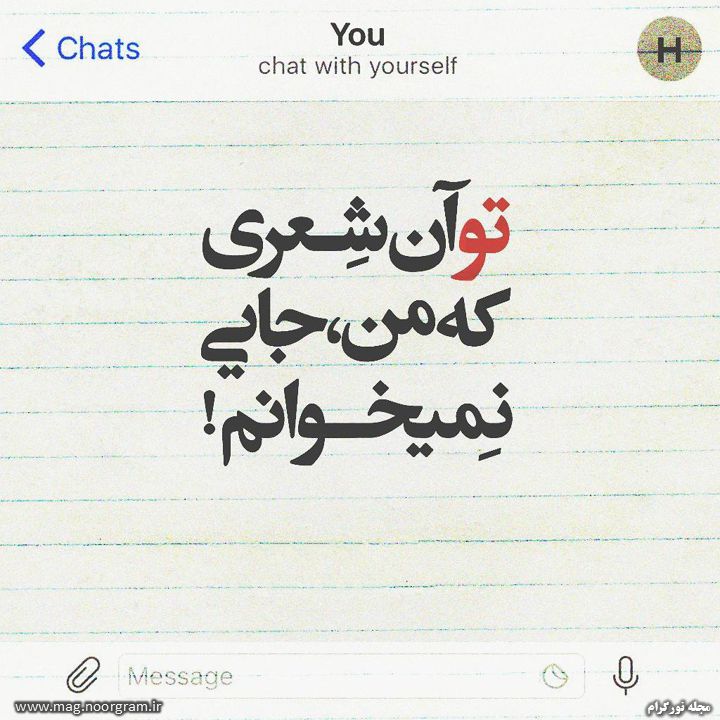 Chats
You
chat with yourself
H
تو آن شِعری
که من، جایی
نِمیخوانم!
Message
www.mag.noorgram.ir
مجله نورگرام